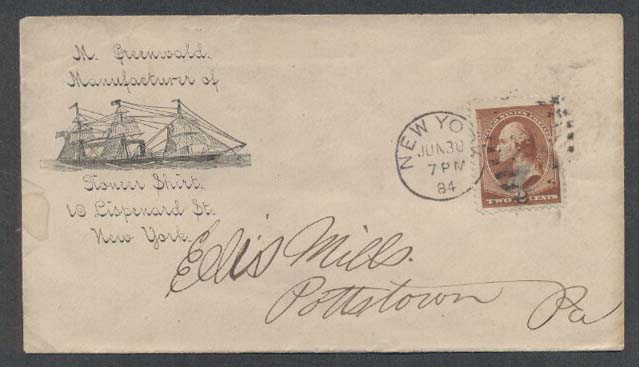 M. Greenwald,
Manufacturer of
Pioneer Shirt.
10 Lispenard St.
New York.
NEW YO
JUN 30
7 PM
84
TWO CENTS
Ellis Mills.
Pottstown Pa